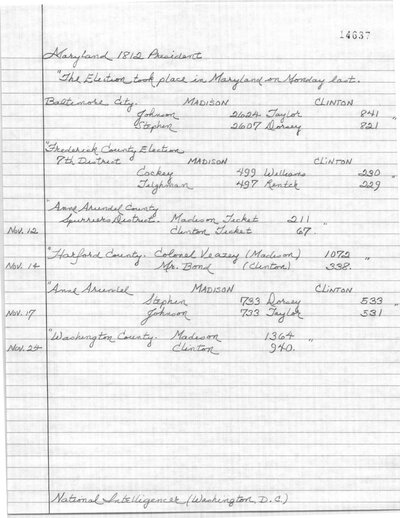 14637
Maryland 1812 President
"The Election took place in Maryland on Monday last.
Baltimore City. MADISON CLINTON
Johnson 2624 Taylor 841 "
Stephen 2607 Dorsey 821
"Frederick County Election
7th District MADISON CLINTON
Cockey 499 Williams 230 "
Tilghman 497 Rentch 229
"Anne Arundel County
Spurriers District. Madison Ticket 211 "
Nov. 12 Clinton Ticket 67.
"Harford County. Colonel Veazey (Madison) 1072 "
Nov. 14 Mr. Bond (Clinton) 338.
"Anne Arundel MADISON CLINTON
Stephen 733 Dorsey 533 "
Nov. 17 Johnson 733 Taylor 531
"Washington County. Madison 1364 "
Nov. 24 Clinton 940.
National Intelligencer (Washington, D.C.)